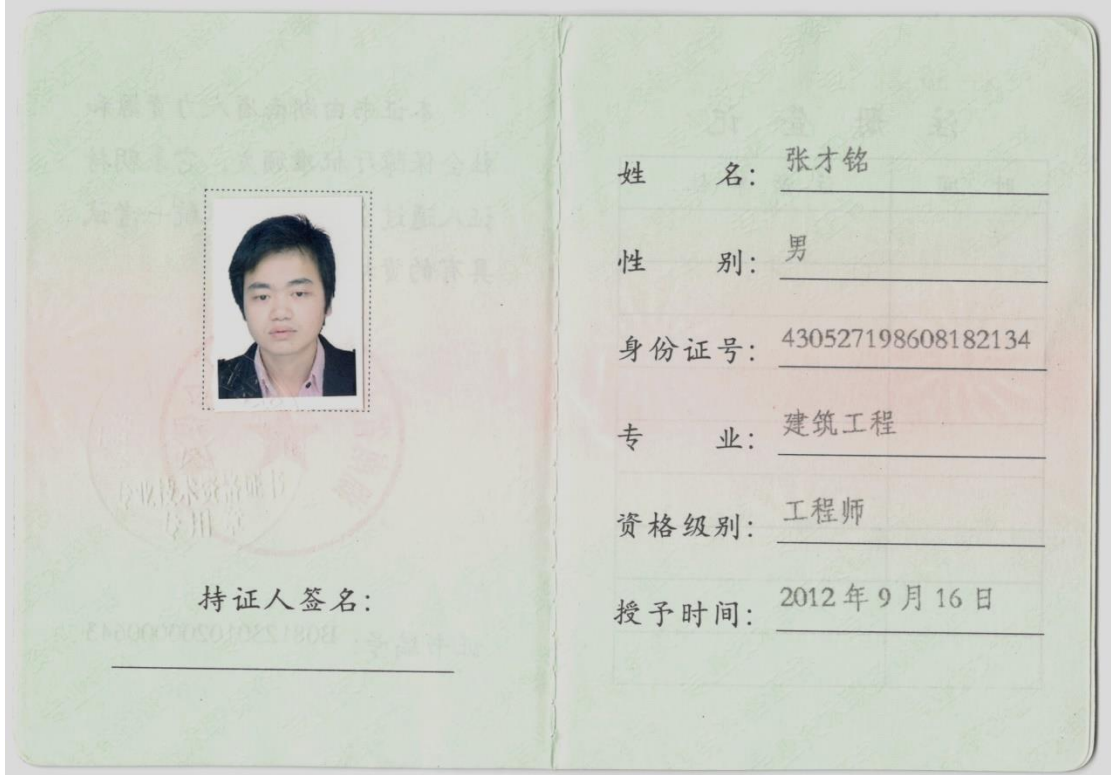 持证人签名：
姓 名： 张才铭
性 别： 男
身份证号： 430527198608182134
专 业： 建筑工程
资格级别： 工程师
授予时间： 2012 年 9 月 16 日